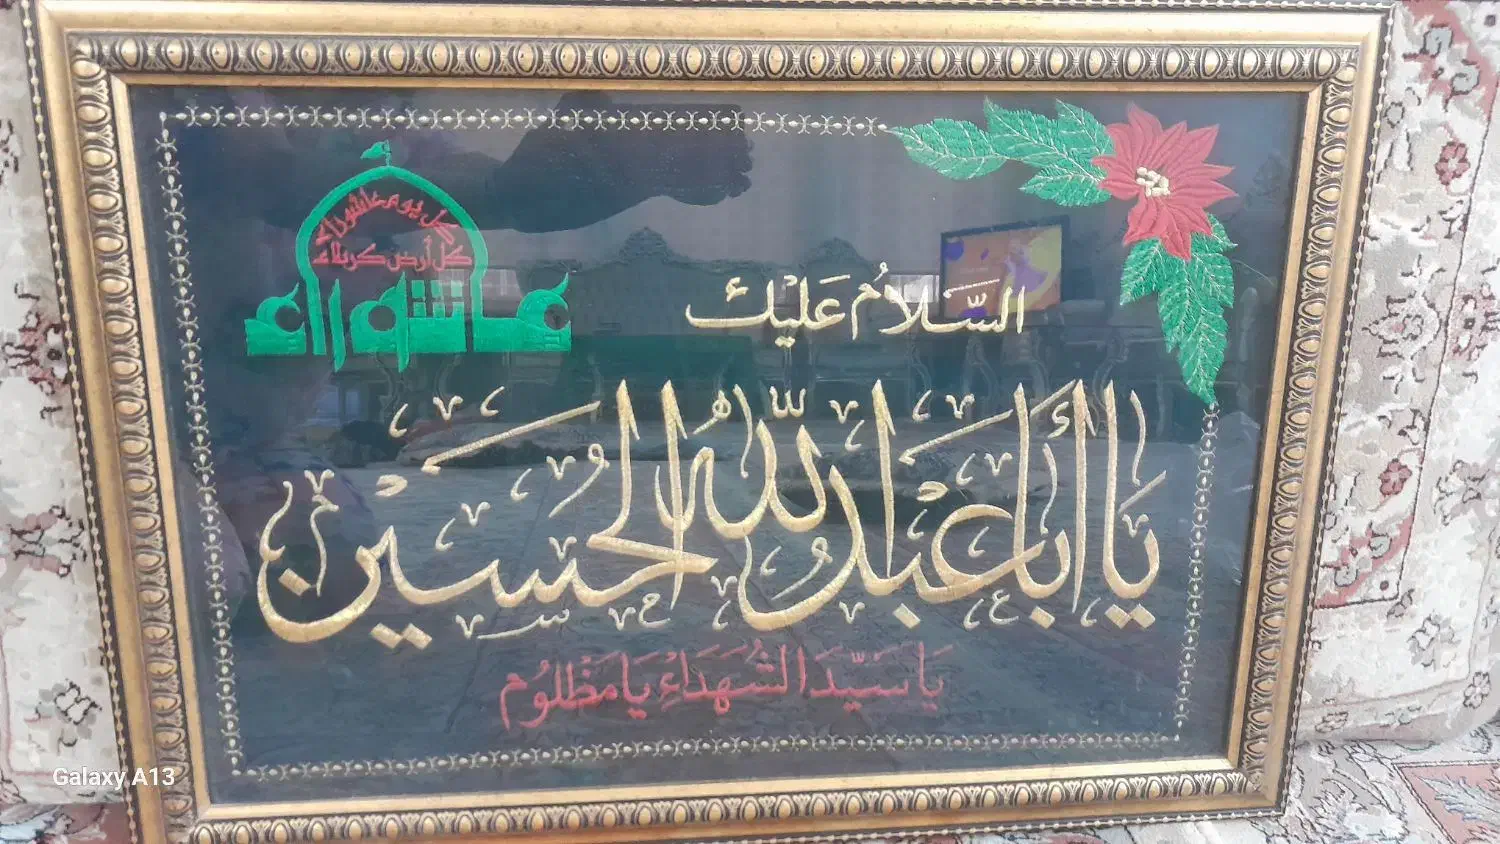 كل يوم عاشوراء
كل أرض كربلاء
عاشوراء
السّلامُ عَلَيْك
يا أَبا عَبدِ اللّٰهِ الحُسَيْن
يَا سَيِّدَ الشُهَدَاءِ يَا مَظْلُوم
Galaxy A13